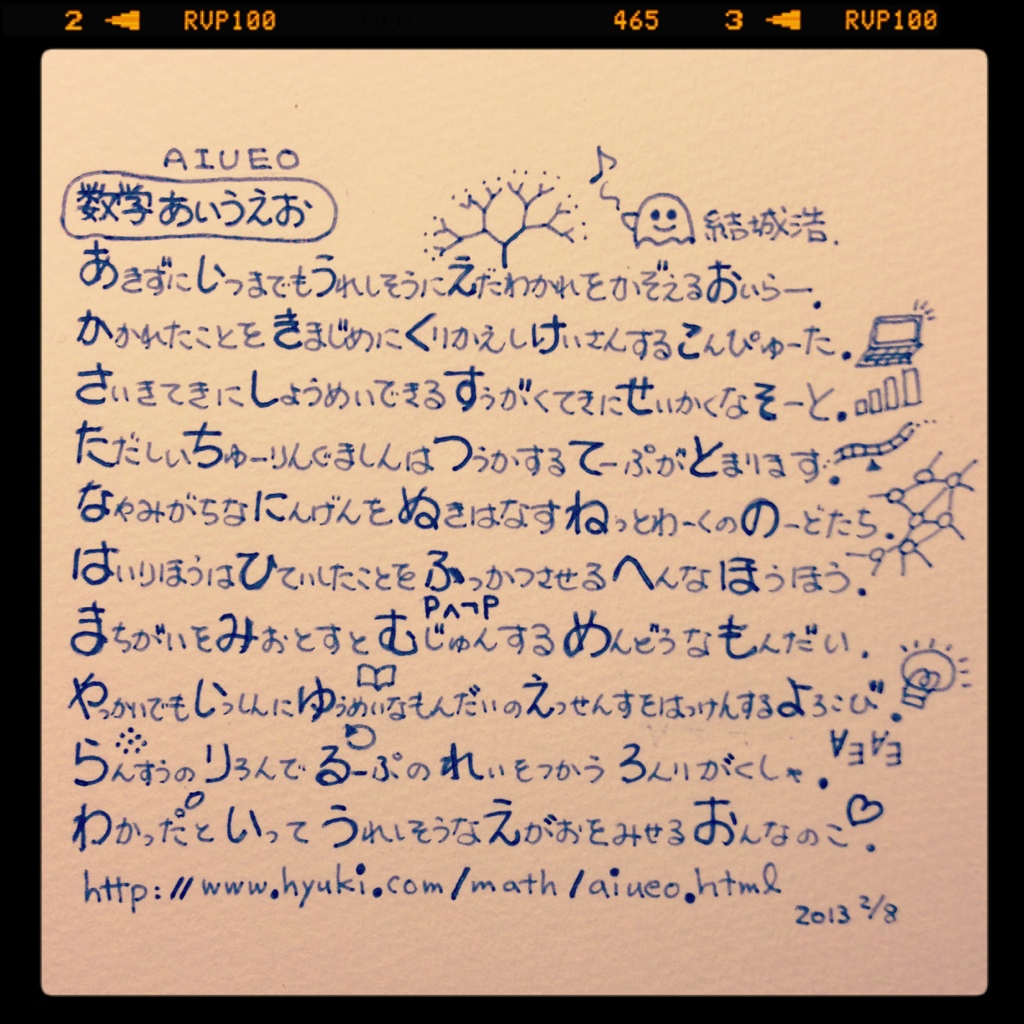 2 RVP100 465 3 RVP100
AIUEO
数学あいうえお
結城浩.
あきずにいつまでもうれしそうにえだわかれをかぞえるおいらー.
かかれたことをきまじめにくりかえしけいさんするこんぴゅーた.
さいきてきにしょうめいできるすうがくてきにせいかくなそーと.
ただしいちゅーりんぐましんはつうかするてーぷがとまります.
なやみがちなにんげんをぬきはなすねっとわーくののーどたち.
はいりほうはひていしたことをふっかつさせるへんなほうほう.
P∧¬P
まちがいをみおとすとむじゅんするめんどうなもんだい.
やっかいでもいっしんにゆうめいなもんだいのえっせんすをはっけんするよろこび.
∀∃∀∃
らんすうのりろんでるーぷのれいをつかうろんりがくしゃ.
わかったといってうれしそうなえがおをみせるおんなのこ.
http://www.hyuki.com/math/aiueo.html
2013 2/8